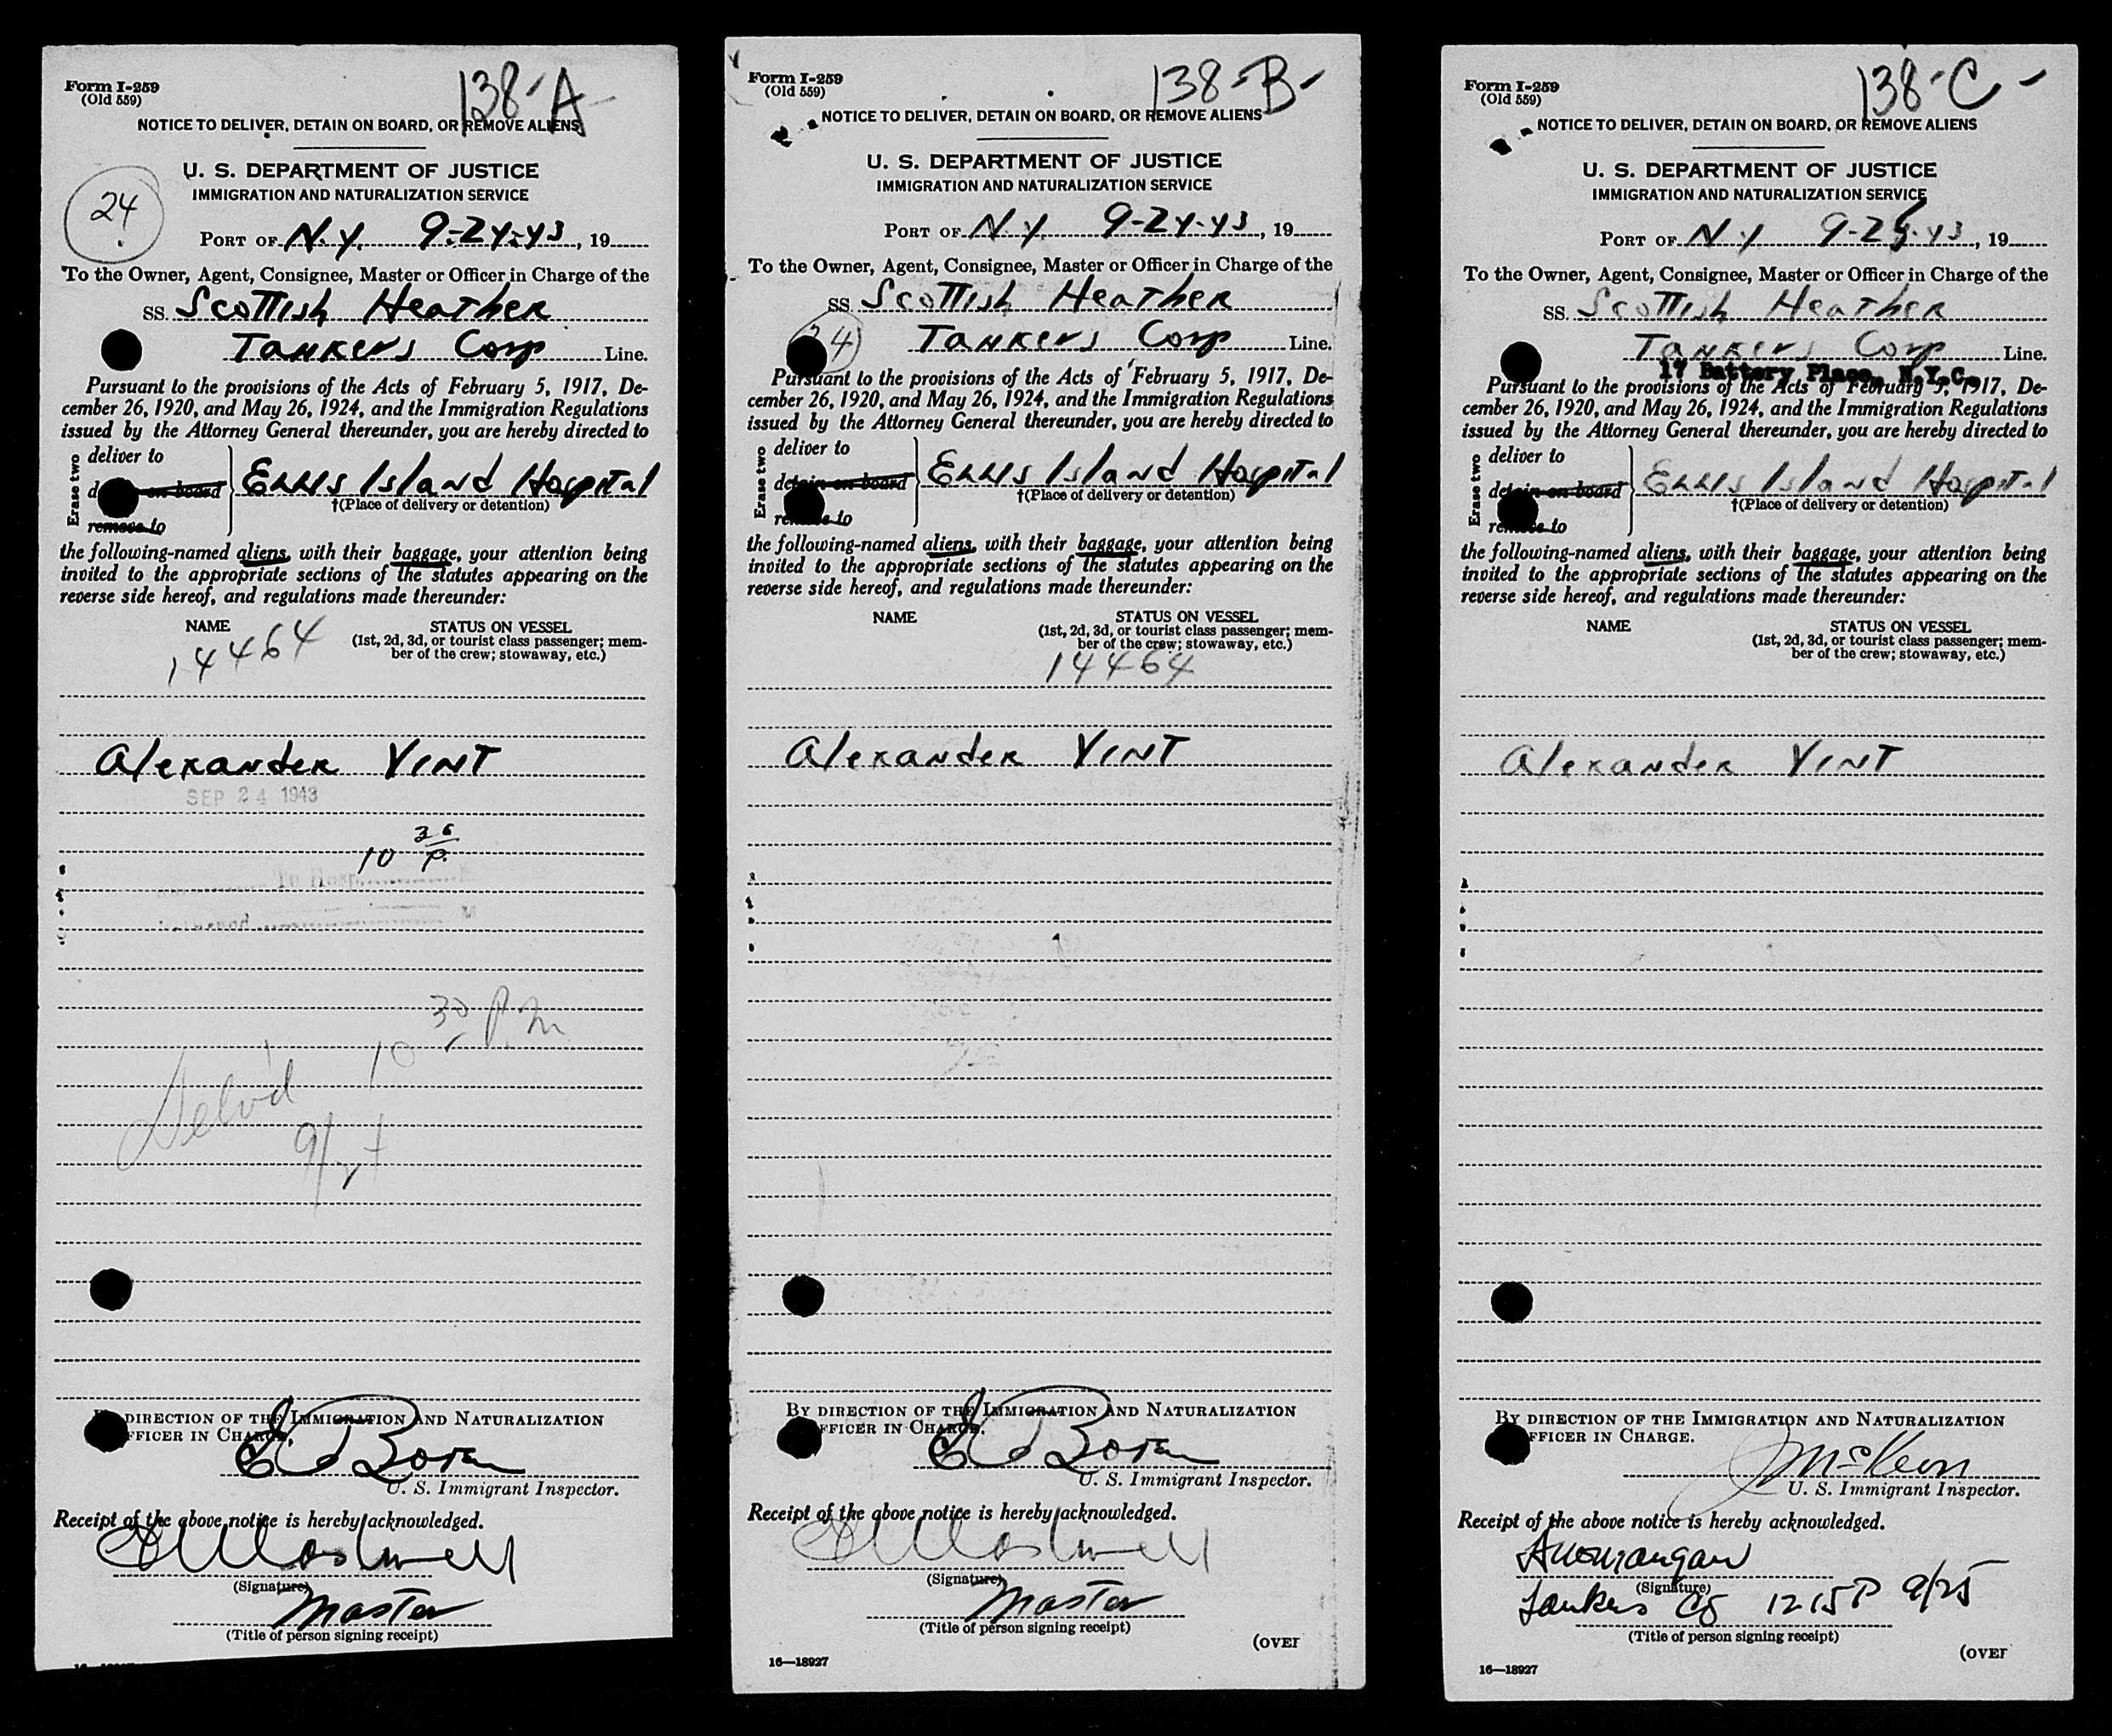 138-A
Form I-259
(Old 559)
NOTICE TO DELIVER, DETAIN ON BOARD, OR REMOVE ALIENS
U. S. DEPARTMENT OF JUSTICE
IMMIGRATION AND NATURALIZATION SERVICE
24
PORT OF N.Y. 9-24-43, 19
To the Owner, Agent, Consignee, Master or Officer in Charge of the
SS. Scottish Heather
Tankers Corp Line.
Pursuant to the provisions of the Acts of February 5, 1917, De-
cember 26, 1920, and May 26, 1924, and the Immigration Regulations
issued by the Attorney General thereunder, you are hereby directed to
Erase two
deliver to
on board
remove to
Ellis Island Hospital
†(Place of delivery or detention)
the following-named aliens, with their baggage, your attention being
invited to the appropriate sections of the statutes appearing on the
reverse side hereof, and regulations made thereunder:
NAME STATUS ON VESSEL
(1st, 2d, 3d, or tourist class passenger; mem-
ber of the crew; stowaway, etc.)
14464
Alexander VINT
SEP 24 1943
10 P.
To Hosp
10 30 P.M
Delv'd
9/24
DIRECTION OF THE IMMIGRATION AND NATURALIZATION
FFICER IN CHARGE.
U. S. Immigrant Inspector.
Receipt of the above notice is hereby acknowledged.
(Signature)
Master
(Title of person signing receipt)
138-B-
Form I-259
(Old 559)
NOTICE TO DELIVER, DETAIN ON BOARD, OR REMOVE ALIENS
U. S. DEPARTMENT OF JUSTICE
IMMIGRATION AND NATURALIZATION SERVICE
PORT OF N.Y 9-24-43, 19
To the Owner, Agent, Consignee, Master or Officer in Charge of the
SS. Scottish Heather
Tankers Corp Line.
Pursuant to the provisions of the Acts of February 5, 1917, De-
cember 26, 1920, and May 26, 1924, and the Immigration Regulations
issued by the Attorney General thereunder, you are hereby directed to
Erase two
deliver to
detain on board
remove to
Ellis Island Hospital
†(Place of delivery or detention)
the following-named aliens, with their baggage, your attention being
invited to the appropriate sections of the statutes appearing on the
reverse side hereof, and regulations made thereunder:
NAME STATUS ON VESSEL
(1st, 2d, 3d, or tourist class passenger; mem-
ber of the crew; stowaway, etc.)
14464
Alexander VINT
BY DIRECTION OF THE IMMIGRATION AND NATURALIZATION
FFICER IN CHARGE.
U. S. Immigrant Inspector.
Receipt of the above notice is hereby acknowledged.
(Signature)
Master
(Title of person signing receipt)
(OVER
16—18927
138-C-
Form I-259
(Old 559)
NOTICE TO DELIVER, DETAIN ON BOARD, OR REMOVE ALIENS
U. S. DEPARTMENT OF JUSTICE
IMMIGRATION AND NATURALIZATION SERVICE
PORT OF N.Y 9-25-43, 19
To the Owner, Agent, Consignee, Master or Officer in Charge of the
SS. Scottish Heather
Tankers Corp Line.
17 Battery Place, N.Y.C.
Pursuant to the provisions of the Acts of February 5, 1917, De-
cember 26, 1920, and May 26, 1924, and the Immigration Regulations
issued by the Attorney General thereunder, you are hereby directed to
Erase two
deliver to
detain on board
remove to
Ellis Island Hospital
†(Place of delivery or detention)
the following-named aliens, with their baggage, your attention being
invited to the appropriate sections of the statutes appearing on the
reverse side hereof, and regulations made thereunder:
NAME STATUS ON VESSEL
(1st, 2d, 3d, or tourist class passenger; mem-
ber of the crew; stowaway, etc.)
Alexander VINT
BY DIRECTION OF THE IMMIGRATION AND NATURALIZATION
FFICER IN CHARGE.
J McKeon
U. S. Immigrant Inspector.
Receipt of the above notice is hereby acknowledged.
(Signature)
Tankers Co 1215P 9/25
(Title of person signing receipt)
(OVER
16—18927